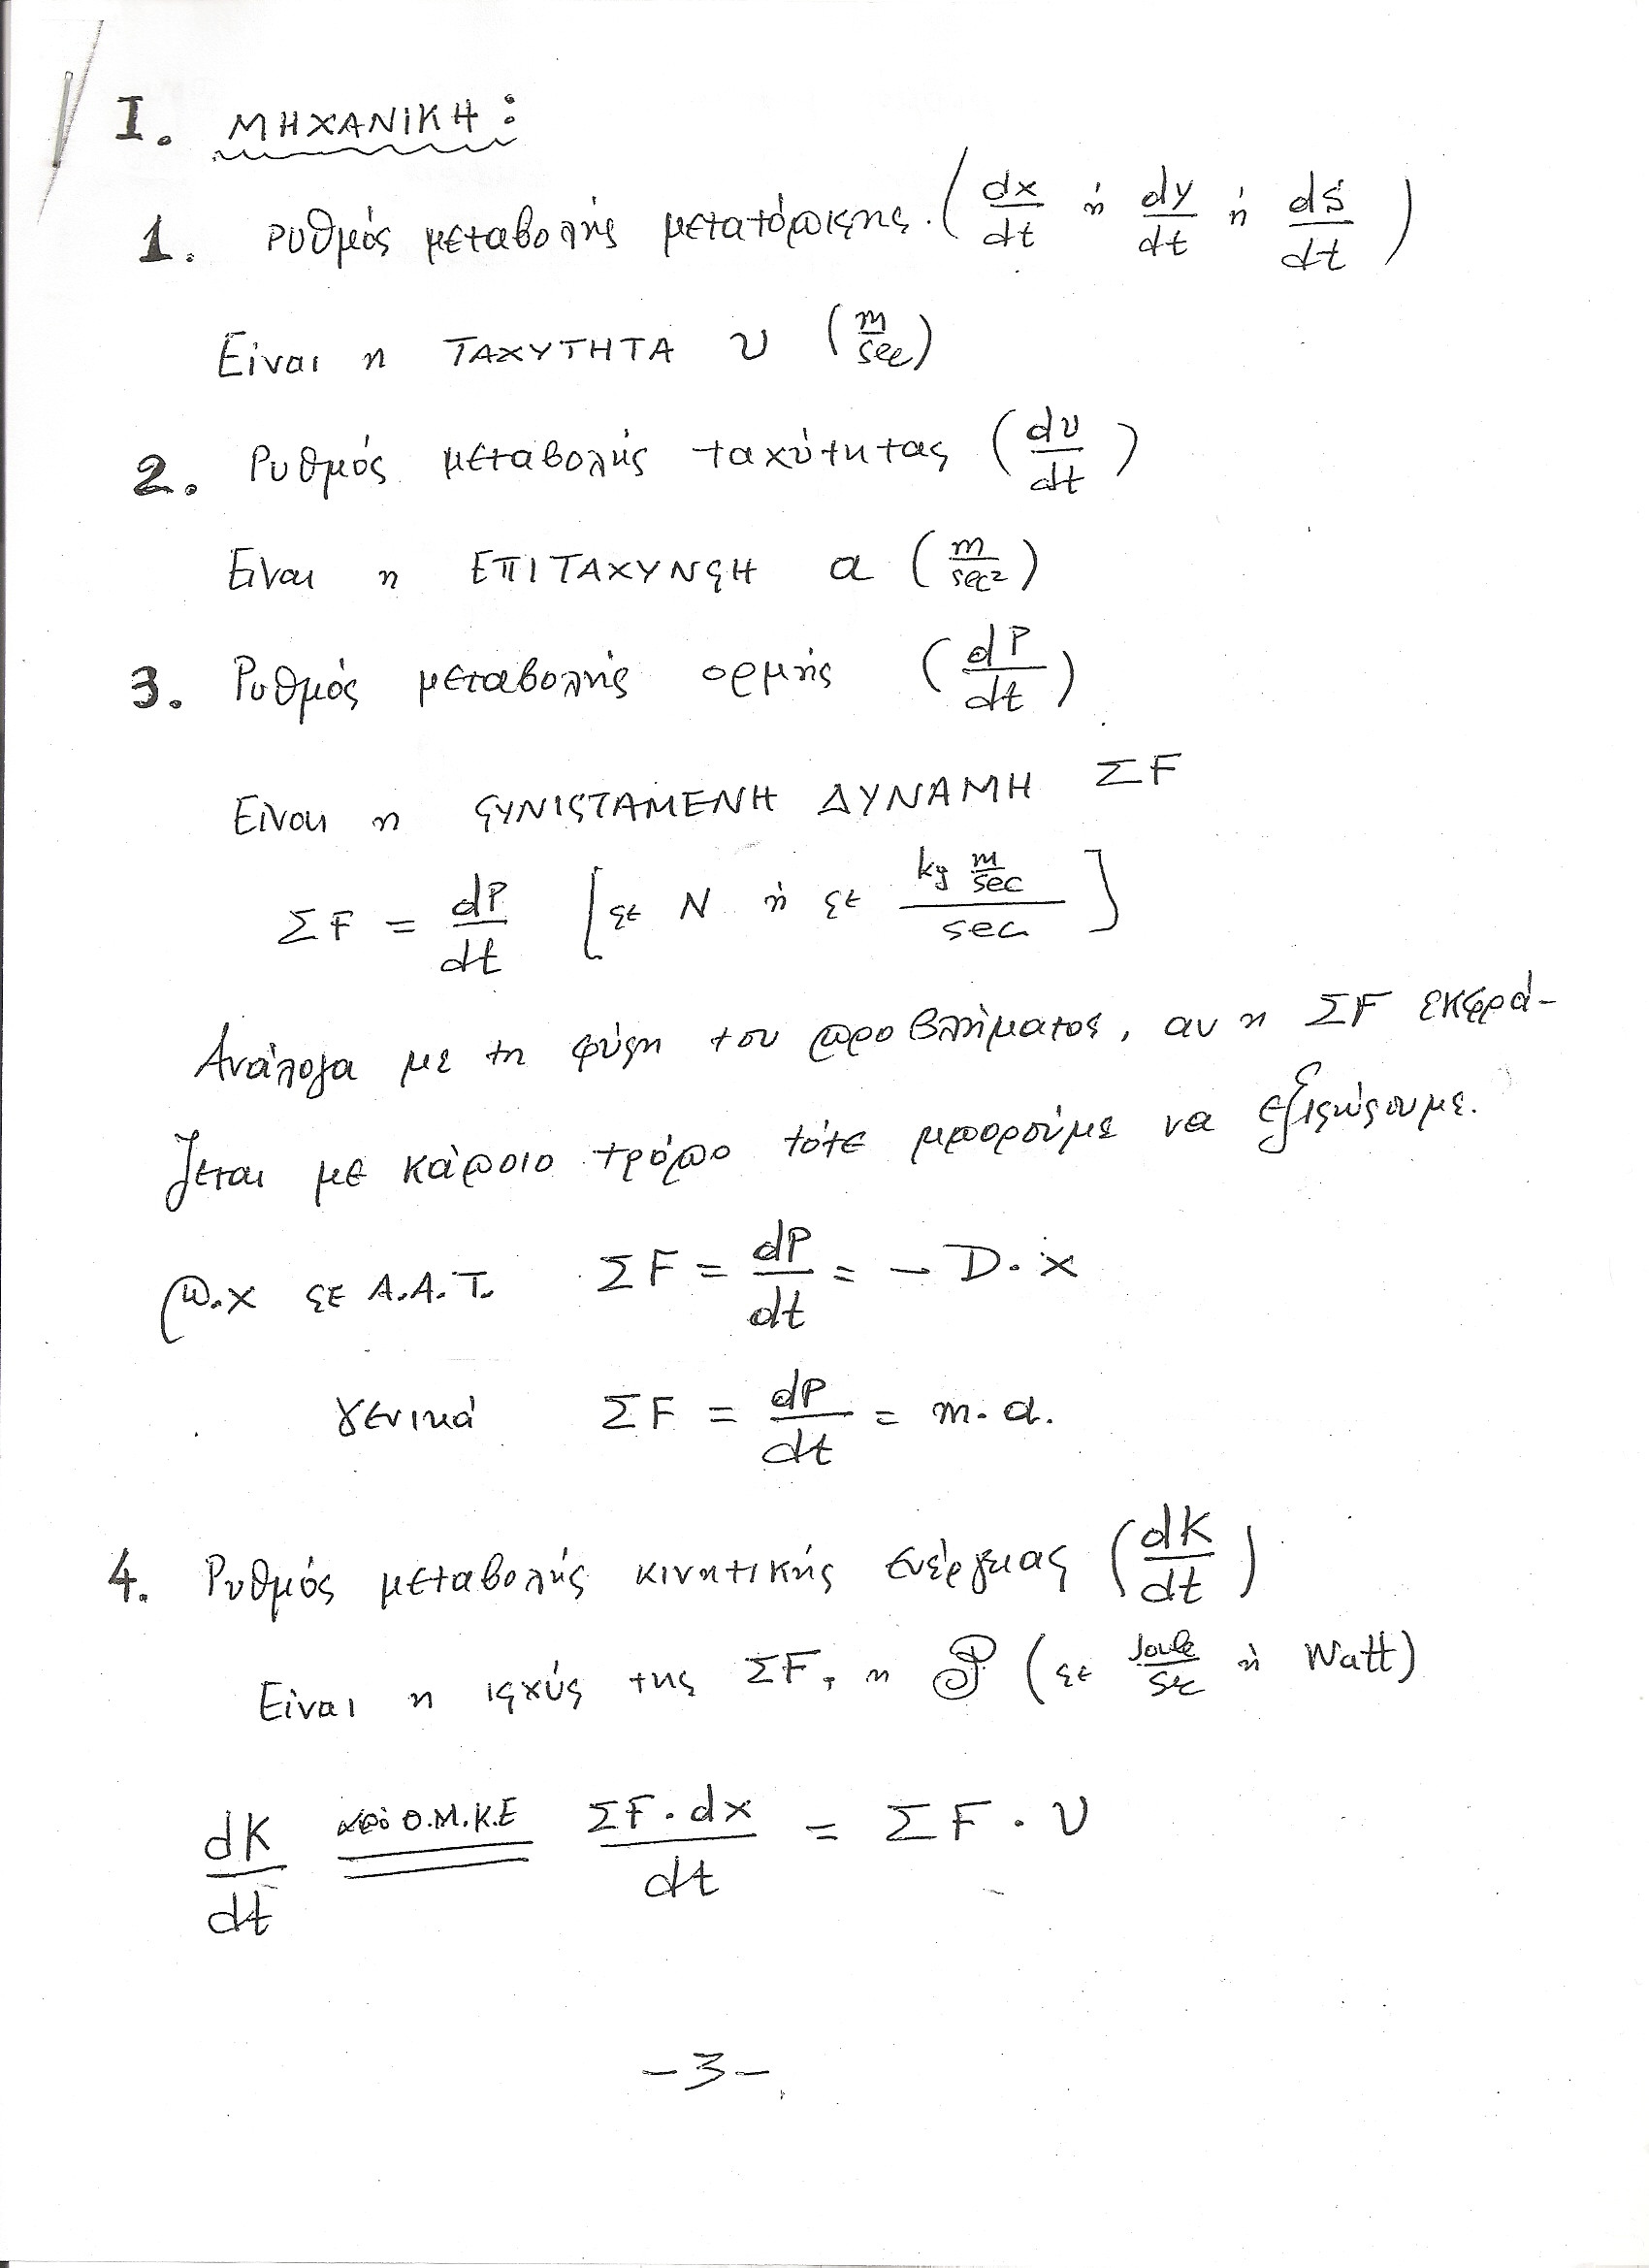 I. ΜΗΧΑΝΙΚΗ:
1. Ρυθμός μεταβολής μετατόπισης. (dx/dt ή dy/dt ή dS/dt)
Είναι η ΤΑΧΥΤΗΤΑ υ (m/sec)
2. Ρυθμός μεταβολής ταχύτητας (dυ/dt)
Είναι η ΕΠΙΤΑΧΥΝΣΗ α (m/sec²)
3. Ρυθμός μεταβολής ορμής (dP/dt)
Είναι η ΣΥΝΙΣΤΑΜΕΝΗ ΔΥΝΑΜΗ ΣF
ΣF = dP/dt [σε N ή σε kg m/sec / sec]
Ανάλογα με τη φύση του προβλήματος, αν η ΣF εκφρά-
ζεται με κάποιο τρόπο τότε μπορούμε να εξισώσουμε.
π.χ σε Α.Α.Τ. ΣF = dP/dt = - D. x
γενικά ΣF = dP/dt = m. a.
4. Ρυθμός μεταβολής κινητικής ενέργειας (dK/dt)
Είναι η ισχύς της ΣF, η P (σε Joule/sec ή Watt)
dK/dt από Θ.Μ.Κ.Ε = ΣF. dx/dt = ΣF. υ
-3-